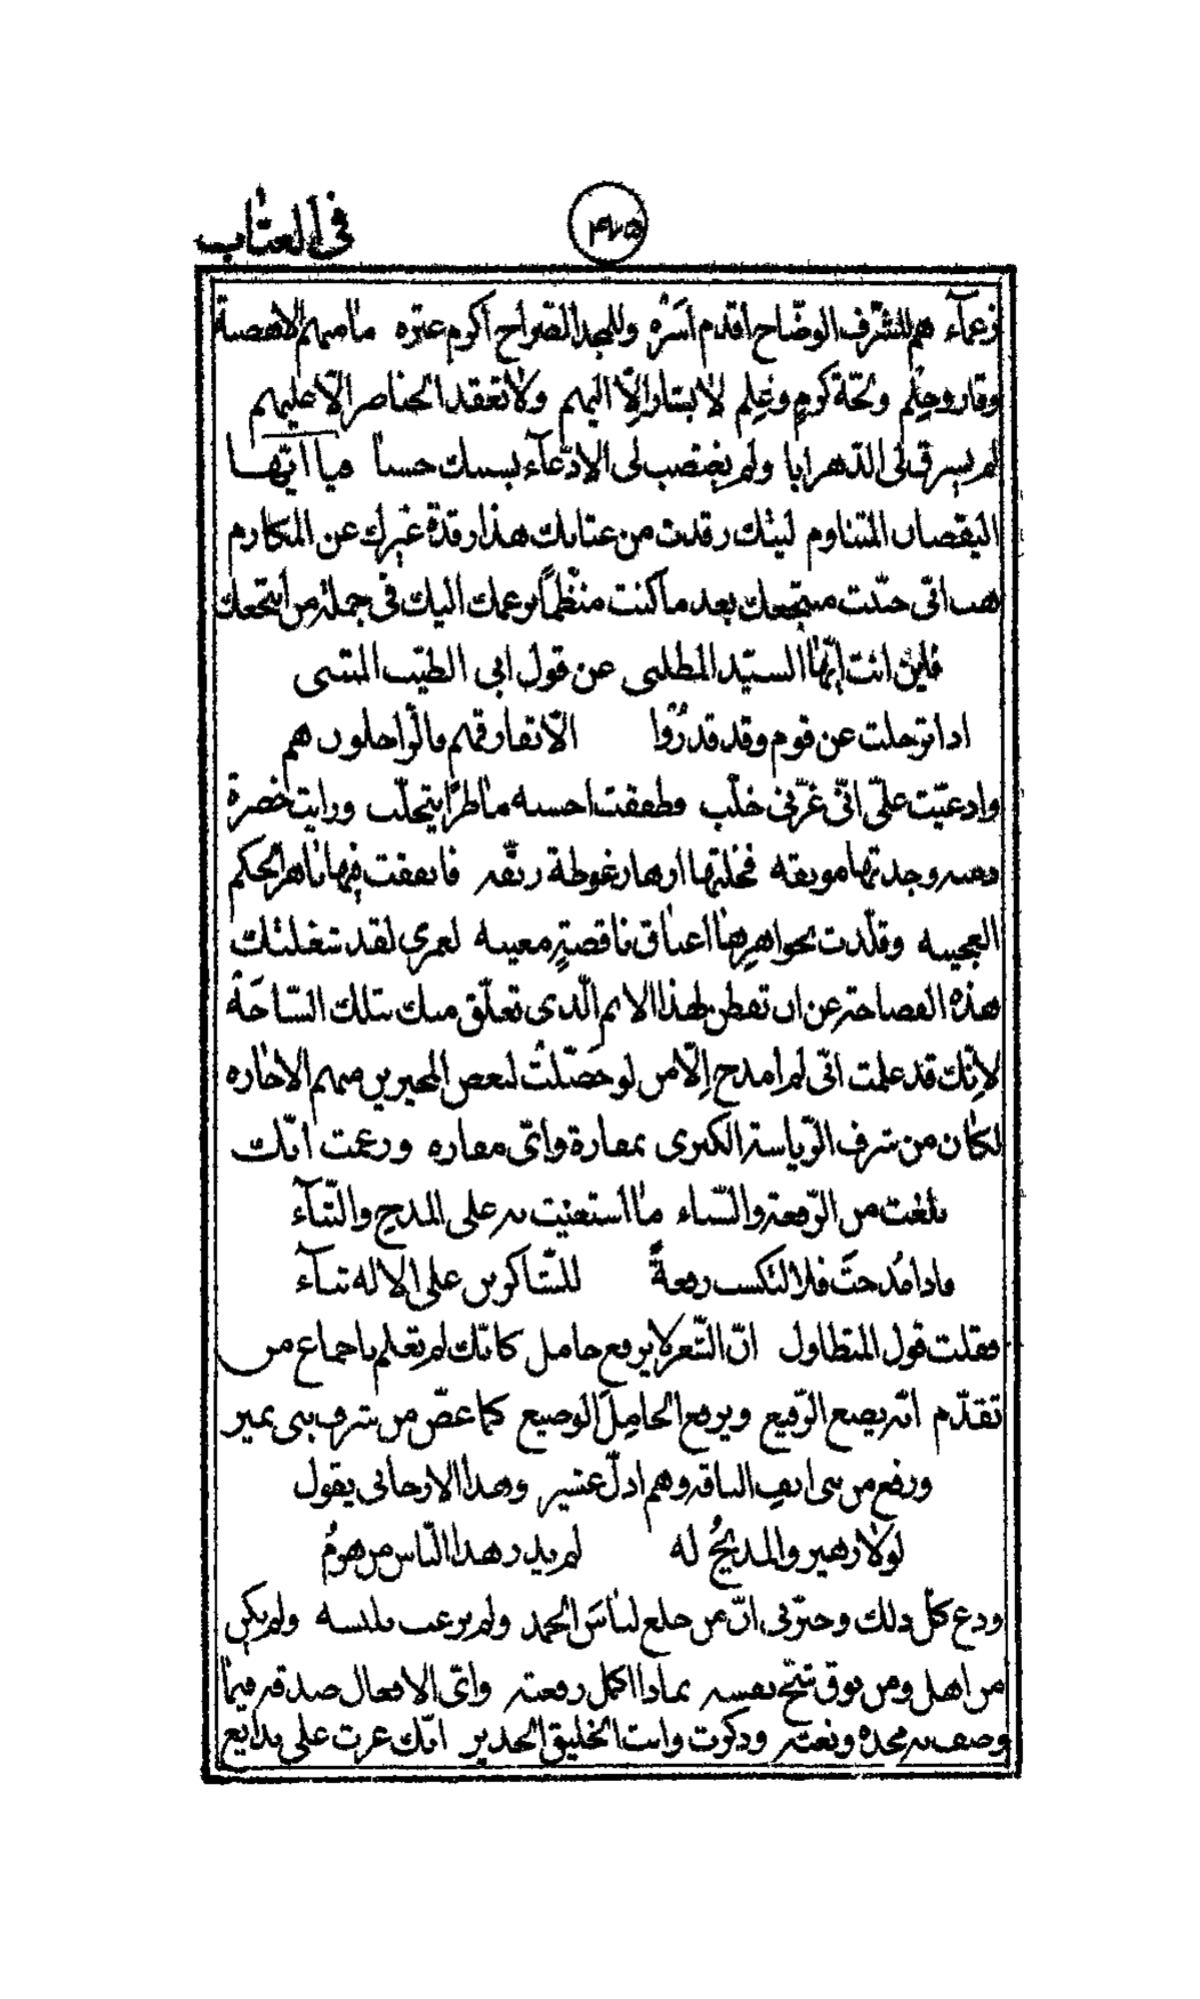 في العتاب
زعمآء هم للشّرف الوضّاح اقدم اسَرُه وللمجد الصّراح اكرم عتره ما منهم الا هضبة
وقار وحِلم ولجّة كرمٍ وعلِم لا يشار اِلّا اليهم ولا تعقد الخناصر الّا عليهم
لم يسرق في الدّهر ابا ولم يغتصب في الادّعآء بسبك حسبا فيا ايّها
اليقضان المتناوم ليتك رقدت من عتابك هذا رقدة غيرك عن المكارم
هب انّي خنت منتجعك بعد ما كنت منتظماً بزعمك اليك في جملة من انتجعك
فاين انت ايّها السيّد المطلبي عن قول ابي الطيّب المتنبي
اذا ترحلت عن قوم وقد قدرُوا الّا تفارقهم فالرّاحلون هم
وادعيّت عليّ انّي غرّني خلّب وطفقت احسبه ماطرًا يتحلّب ورايت خضرة
دمنه وجدتها مويقه فخلتها ازهار غوطة ريّقه فانفقت فيها جواهر الحكم
العجيبه وقلّدت بجواهرها اعناق ناقصةٍ معيبه لعمري لقد شغلتك
هذه الفصاحة عن ان تفطن لهذا الاثم الّذي تعلّق منك بتلك السّاحَة
لانّك قد علمت انّي لم امدح اِلّا من لو حصّلتُ لبعض المجيرين منهم الاجازه
لكان من شرف الرّياسة الكبرى بمفازة وايّ مفازه وزعمت انّك
بلغت من الرّفعة والسّناء ما استغنيت به على المديح والثّنآء
واذا مُدحتَ فلا لتكسب رفعةً للشّاكرين على الاله ثنآء
فقلت قول المتطاول انّ الشّعر لا يرفع خامل كانّك لم تعلم باجماع من
تقدّم انّه يضع الرّفيع ويرفع الخامِل الوضيع كما غضّ من شرف بني نمير
ورفع من بني انفِ الناقه وهم اذلّ عشير وهذا الارجاني يقول
لولا زهير والمديحُ له لم يدر هذا النّاس من هرمُ
ودع كلّ ذلك وخبّرني انّ من خلع لباسَ الحمد ولم يرغب بلبسه ولم يكن
من اهله ومن يوق شحّ نفسه بماذا اكمل رفعته وايّ الافعال صدقه فيما
وصف به مجده ونعته وذكرت وانت الخليق الجدير انّك عرت على بدايع